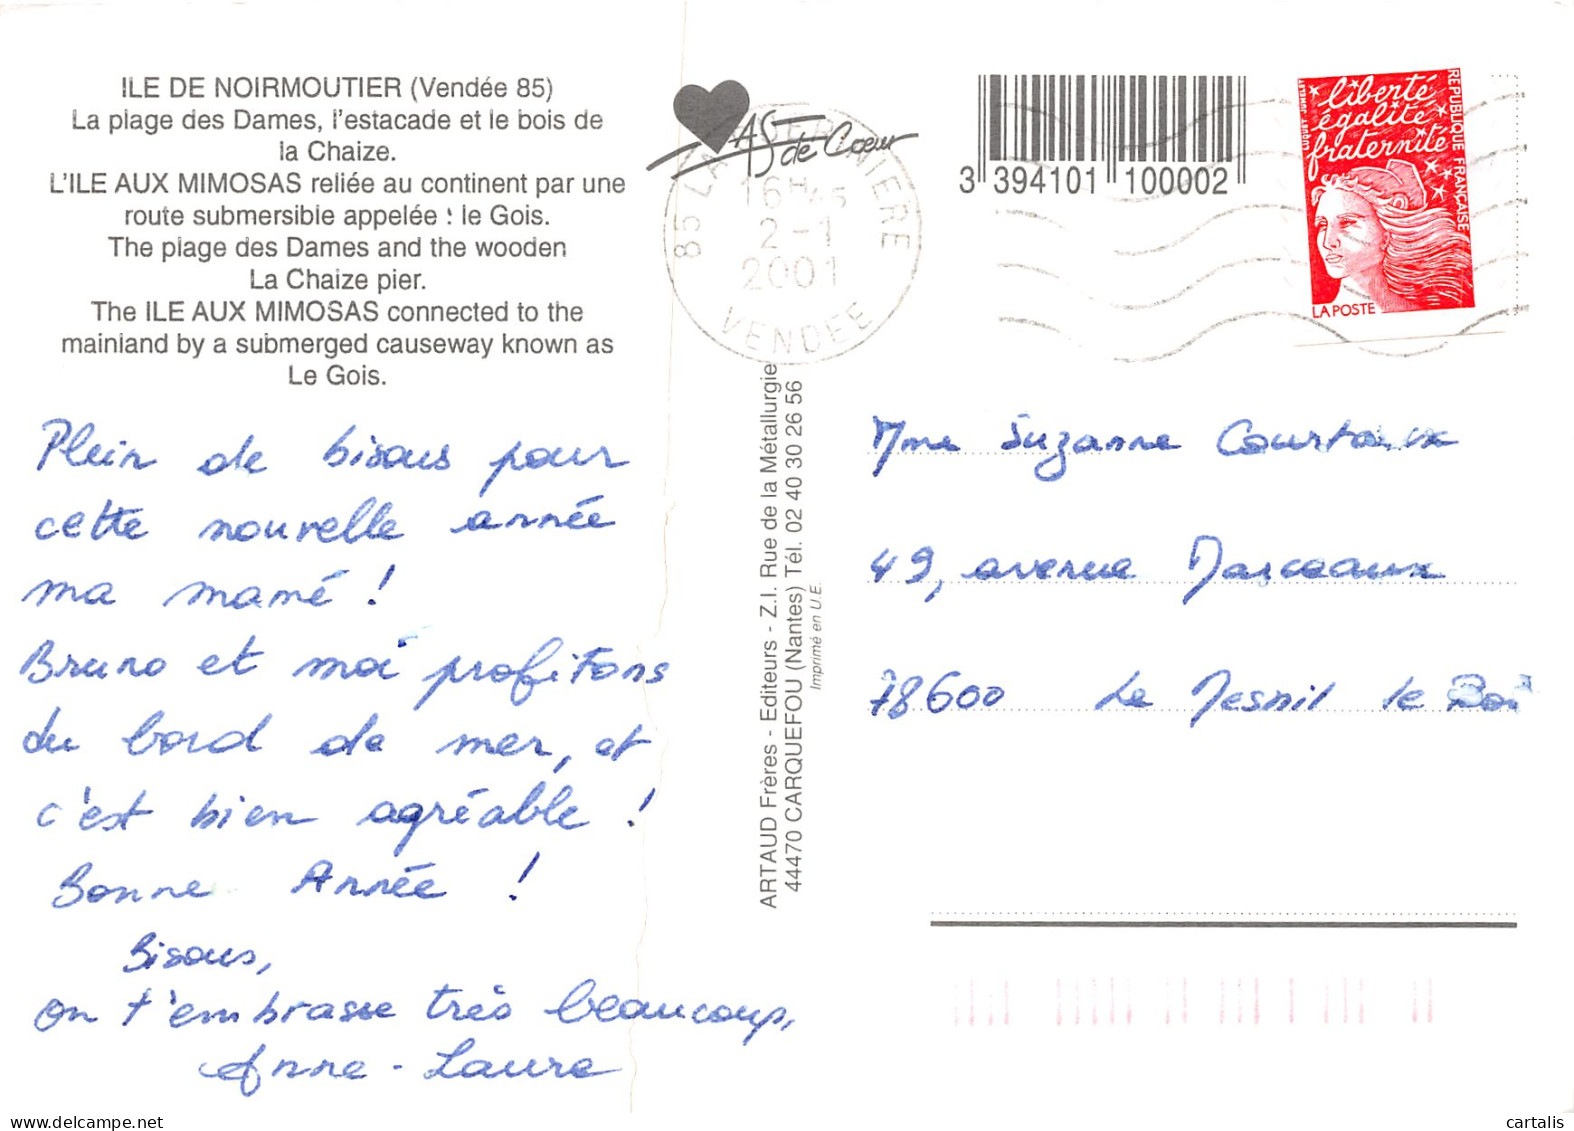 ILE DE NOIRMOUTIER (Vendée 85)
La plage des Dames, l'estacade et le bois de
la Chaize.
L'ILE AUX MIMOSAS reliée au continent par une
route submersible appelée : le Gois.
The plage des Dames and the wooden
La Chaize pier.
The ILE AUX MIMOSAS connected to the
mainland by a submerged causeway known as
Le Gois.
Plein de bisous pour
cette nouvelle année
ma mamé !
Bruno et moi profitons
du bord de mer, et
c'est bien agréable !
Bonne Année !
Bisous,
on t'embrasse très beaucoup,
Anne-Laure
AS de Coeur
85 LA
16H45
2-1
2001
VENDEE
ARTAUD Frères - Editeurs - Z.I. Rue de la Métallurgie
44470 CARQUEFOU (Nantes) Tél. 02 40 30 26 56
Imprimé en U.E.
3 394101 100002
liberté
égalité
fraternité
REPUBLIQUE FRANÇAISE
LA POSTE
Mme Suzanne Courtaux
49, avenue Marceaux
78600 Le Mesnil le Roi
cartalis